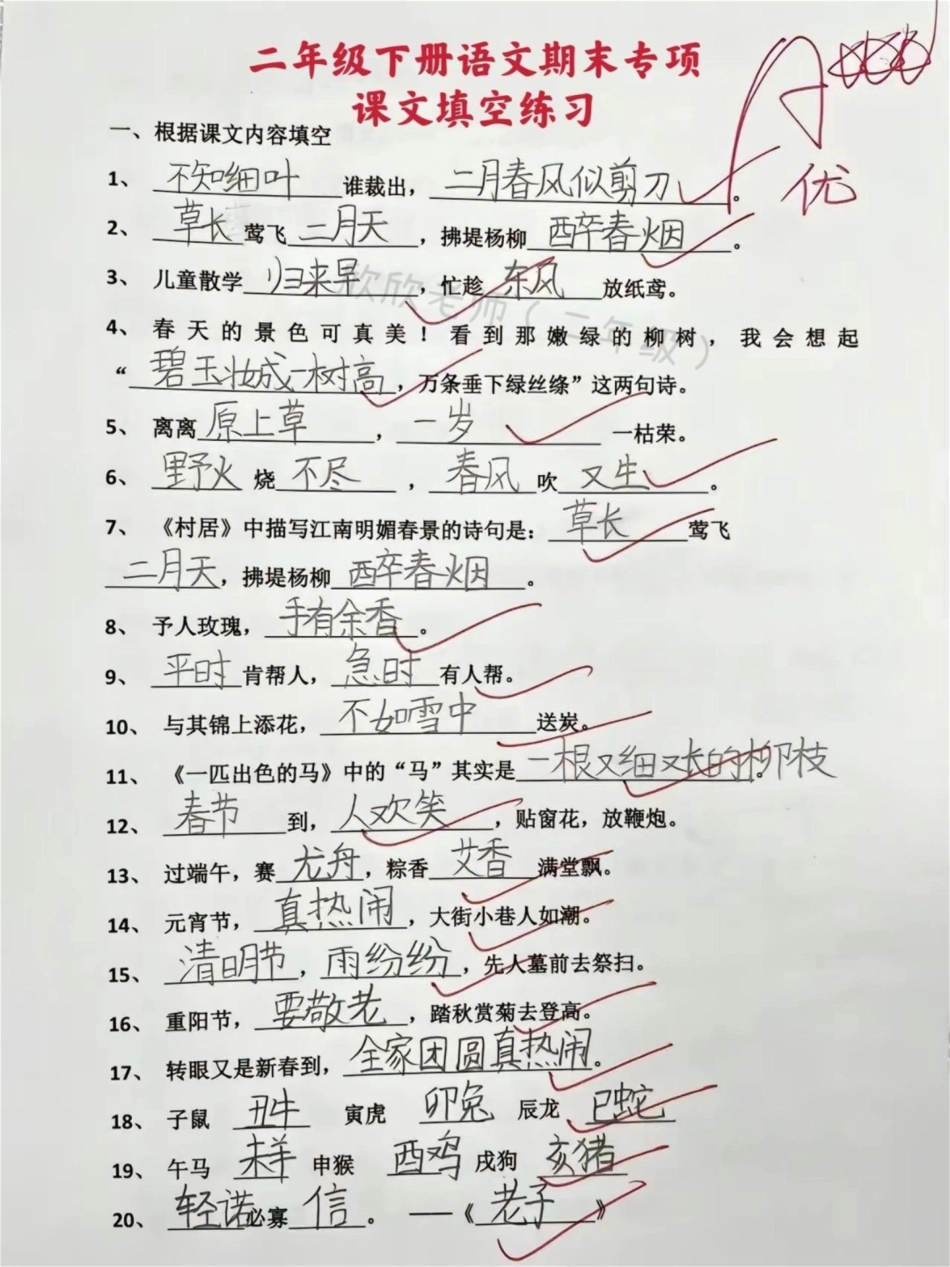 二年级下册语文期末专项
课文填空练习
优
一、根据课文内容填空
1、 不知细叶 谁裁出，二月春风似剪刀。
2、 草长 莺飞 二月天，拂堤杨柳 醉春烟。
3、 儿童散学 归来早，忙趁 东风 放纸鸢。
欣欣老师（二年级）
4、 春天的景色可真美！看到那嫩绿的柳树，我会想起
“碧玉妆成一树高，万条垂下绿丝绦”这两句诗。
5、 离离 原上草，一岁 一枯荣。
6、 野火 烧 不尽，春风 吹 又生。
7、 《村居》中描写江南明媚春景的诗句是：草长 莺飞
二月天，拂堤杨柳 醉春烟。
8、 予人玫瑰，手有余香。
9、 平时 肯帮人，急时 有人帮。
10、 与其锦上添花，不如雪中 送炭。
11、 《一匹出色的马》中的“马”其实是 一根又细又长的柳枝。
12、 春节 到，人欢笑，贴窗花，放鞭炮。
13、 过端午，赛 龙舟，粽香 艾香 满堂飘。
14、 元宵节，真热闹，大街小巷人如潮。
15、 清明节，雨纷纷，先人墓前去祭扫。
16、 重阳节，要敬老，踏秋赏菊去登高。
17、 转眼又是新春到，全家团圆真热闹。
18、 子鼠 丑牛 寅虎 卯兔 辰龙 巳蛇
19、 午马 未羊 申猴 酉鸡 戌狗 亥猪
20、 轻诺 必寡 信。 ——《老子》